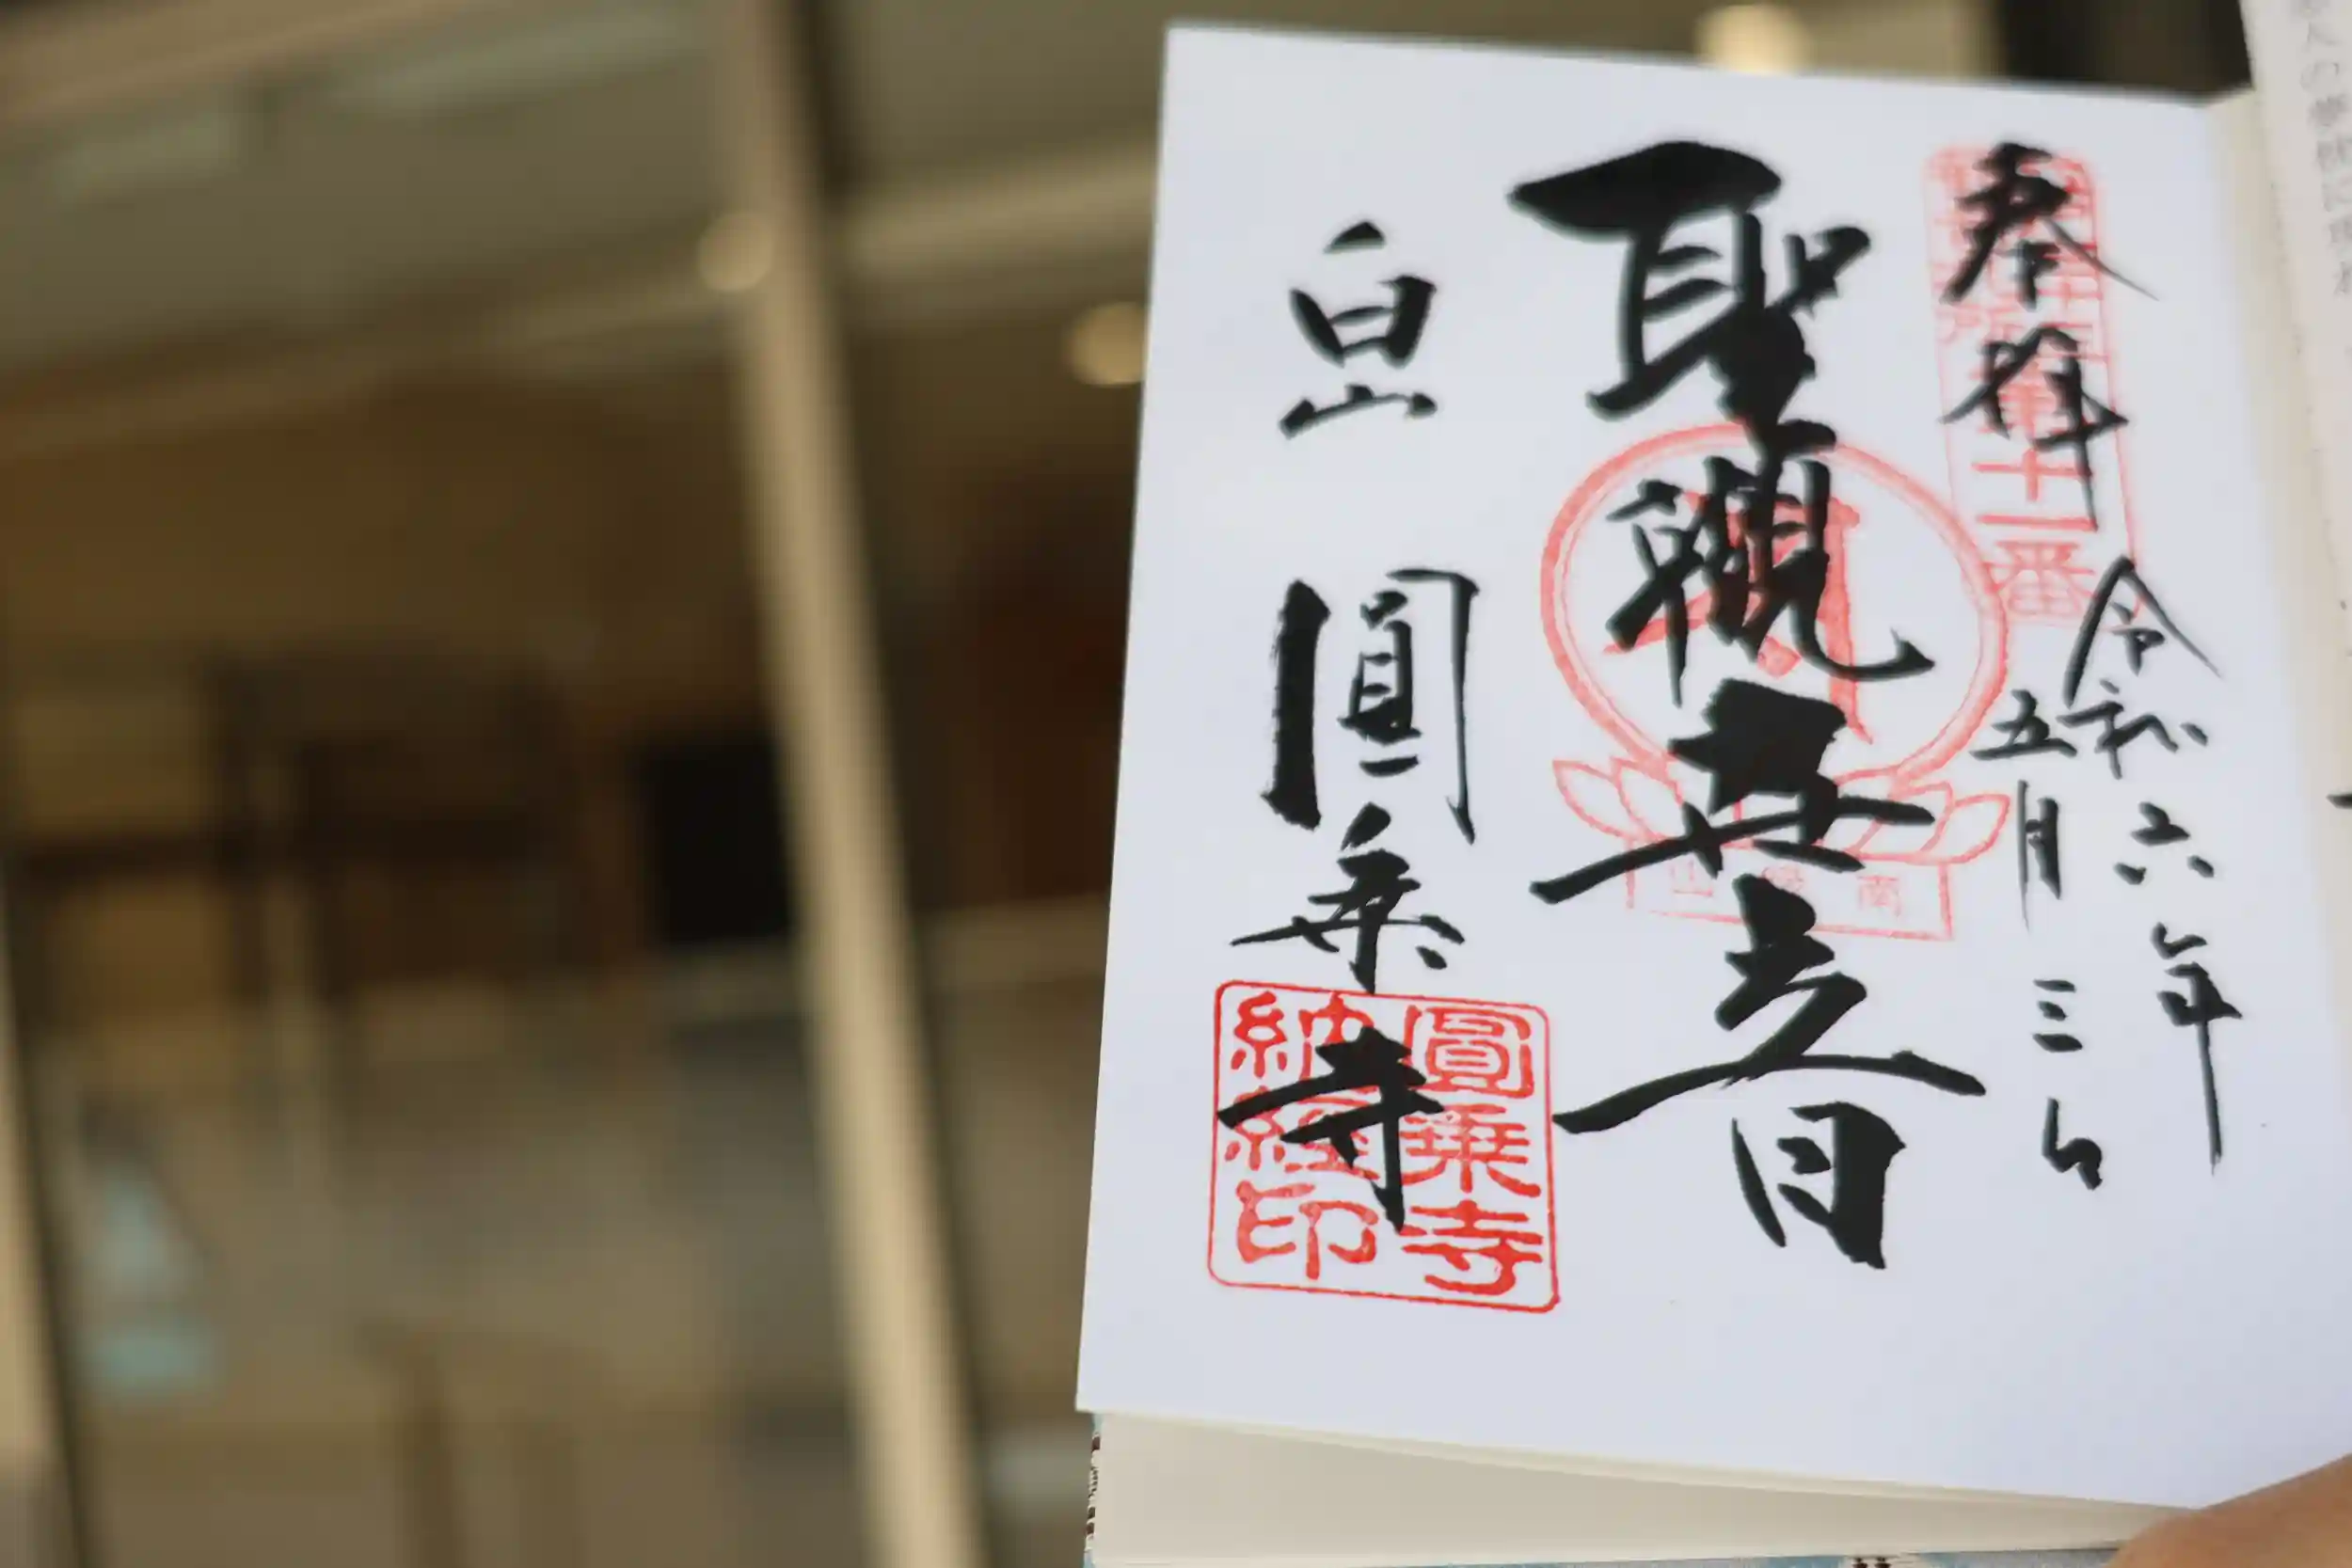 奉拝
令和六年
五月三日
聖観世音
白山
圓乗寺
十一番
圓乗寺
納経印